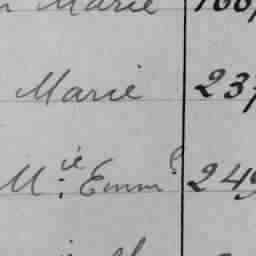 Marie
Marie 23
M.ie Emm? 249